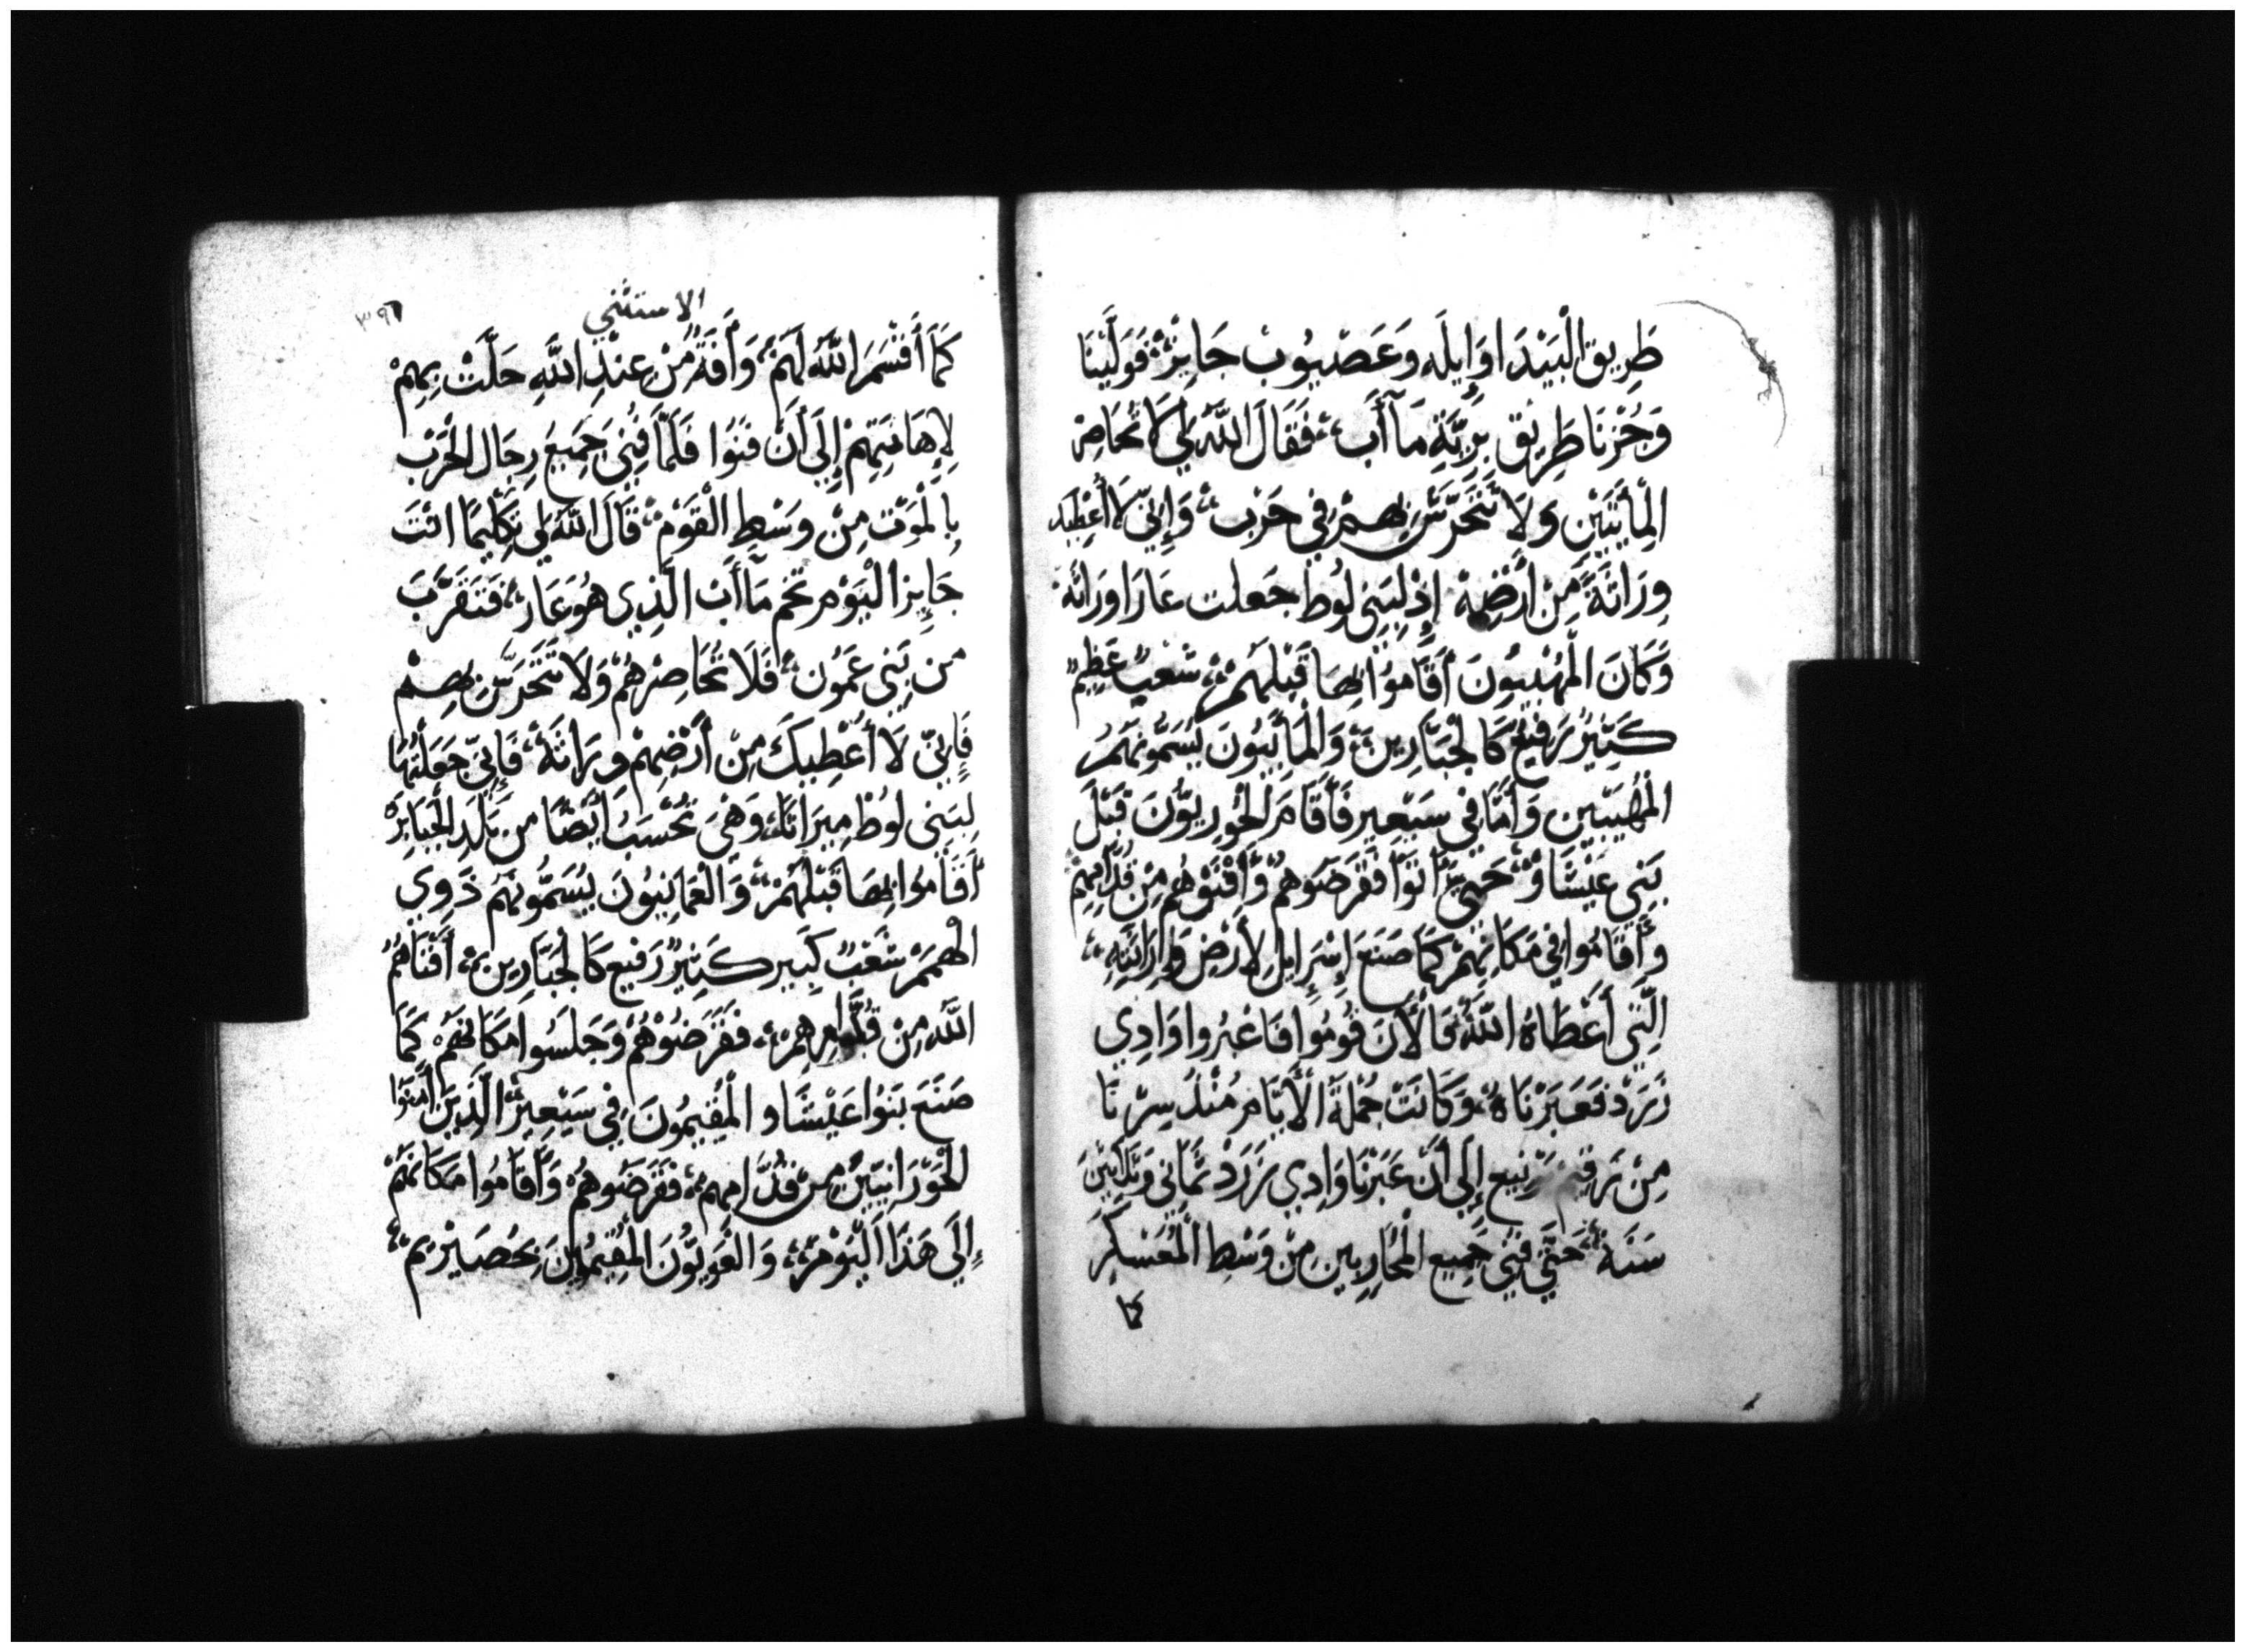 طَرِيقِ الْبَيْدَا وَإِيلَه وَعَصْيُوبْ جَايِزْ فَوَلَّيْنَا
وَجُزْنَا طَرِيْق بَرِّيَّةِ مَآأَب فَقَالَ اللَّهُ لِي لَا تُحَاصِرْ
الْمأَبِيِّيْنِ وَلَا تَتَحَرَّشْ بِهِمْ فِي حَرْب وَإِنِّي لَا أُعْطِيك
وِرَاثَةً مِّنْ أَرْضِهِمْ إِذْ لِبَنِي لُوط جَعلت عَارَا وِرَاثَة
وَكَانَ الْمُهْيِبِيُونَ أَقَامُوْا بِهَا قَبْلَهُمْ شَعْبٌ عَظِيمٌ
كَثِيْرٌ رَفِيعٌ كَالْجَبَّارِين وَالْمَأَبِيُونَ يُسَمُّونَهُمُ
الْمُهَيبيْين وَأَمَّا فِي سَيْعِيرِ فَأَقَامَ الْحُوْرِيُّوْنَ قَبْلَ
بَنِي عَيْشَاوْ حَتَّى أَتَوْا فَقَرَضُوهم وَأَفْنَوْهُم مِنْ قُدَّامِهِمْ
وَأَقَامُوا فِي مَكَانِهِمْ كَمَا صَنَعَ إِسْرَايِل لِأَرْضِ وِرَاثَتِهِ
الَّتِي أَعْطَاهُ اللَّهُ فَالْأَنَ قُومُوا فَاعْبُرُوا وَادِي
زَرَدْ فَعَبَرْنَاهُ وَكَانَتْ جُمْلَةُ الْأَيَّامِ مُنْذُ سِرْنَا
مِنْ رَقِيم بَرْنِيع إِلَى أَنْ عَبَرْنَا وَادِي زَرَدْ ثَمَانِي وَثَلَاثِيْنَ
سَنَة حَتَّى فَنِيَ جَمِيع الْمُحَارِبِين مِنْ وَسْطِ الْمُعَسْكَرِ
كَمَا
الاستثني
٣٩٦
كَمَا أَقْسَمَ اللَّهُ لَهُمْ وَأَفَةٌ مِّنْ عِنْدِ اللَّهِ حَلَّتْ بِهِمْ
لِإِهَانَتِهِمْ إِلَى أَنْ فَنَوُا فَلَمَّا فَنِيَ جَمِيعَ رِجَال الْحَرْب
بِالْمَوْتِ مِنْ وَسْطِ الْقَوْمِ قَالَ اللَّهُ لِي تَكْلِيمًا انْتَ
جَايِزا الْيَوْم تخم مَآأَبْ الَّذِي هُوَ عَار فَتَقَرَّبَ
مِن بَنِي عَمُون فَلَا تُحَاصِرْهُمْ وَلَا تَتَحَرَّشْ بِهِمْ
فَإِنِّي لَا أُعْطِيكَ مِنْ أَرْضِهِمْ وِرَاثَةً فَإِنِّي جَعَلْتُهَا
لِبَنِي لُوطْ مِيرَاثًا وَهِيَ تُحْسَبُ أَيْضًا مِن بَلَدِ الْجَبَابِرَه
أَقَامُوا بِهَا قَبْلَهُمْ وَالْعَمَانِيُونَ يُسَمُّونَهُم ذَوِي
الْهِمَمْ شَعْبٌ كَبِير كَثِيْرٌ رَفِيع كَالْجَبَّارِين أَفْنَاهُمُ
اللَّهُ مِنْ قُدَّامِهِمْ فَقَرَضُوْهُمْ وَجَلَسُوا مَكَانَهُمْ كَمَا
صَنَع بَنُوْا عَيْشَاو الْمُقِيْمُونَ فِي سَيْعِيْر الَّذِينَ أَفْنَوْا
الْحَوْرَانِيِّيْنَ مِن قُدَّامِهِمْ فَقَرَضُوهُمْ وَأَقَامُوا مَكَانَهُمْ
إِلَى هَذَا الْيَوْم وَالْعَوِيُّوْنَ الْمُقِيْمُوْنَ بِحُصَيْرِيم